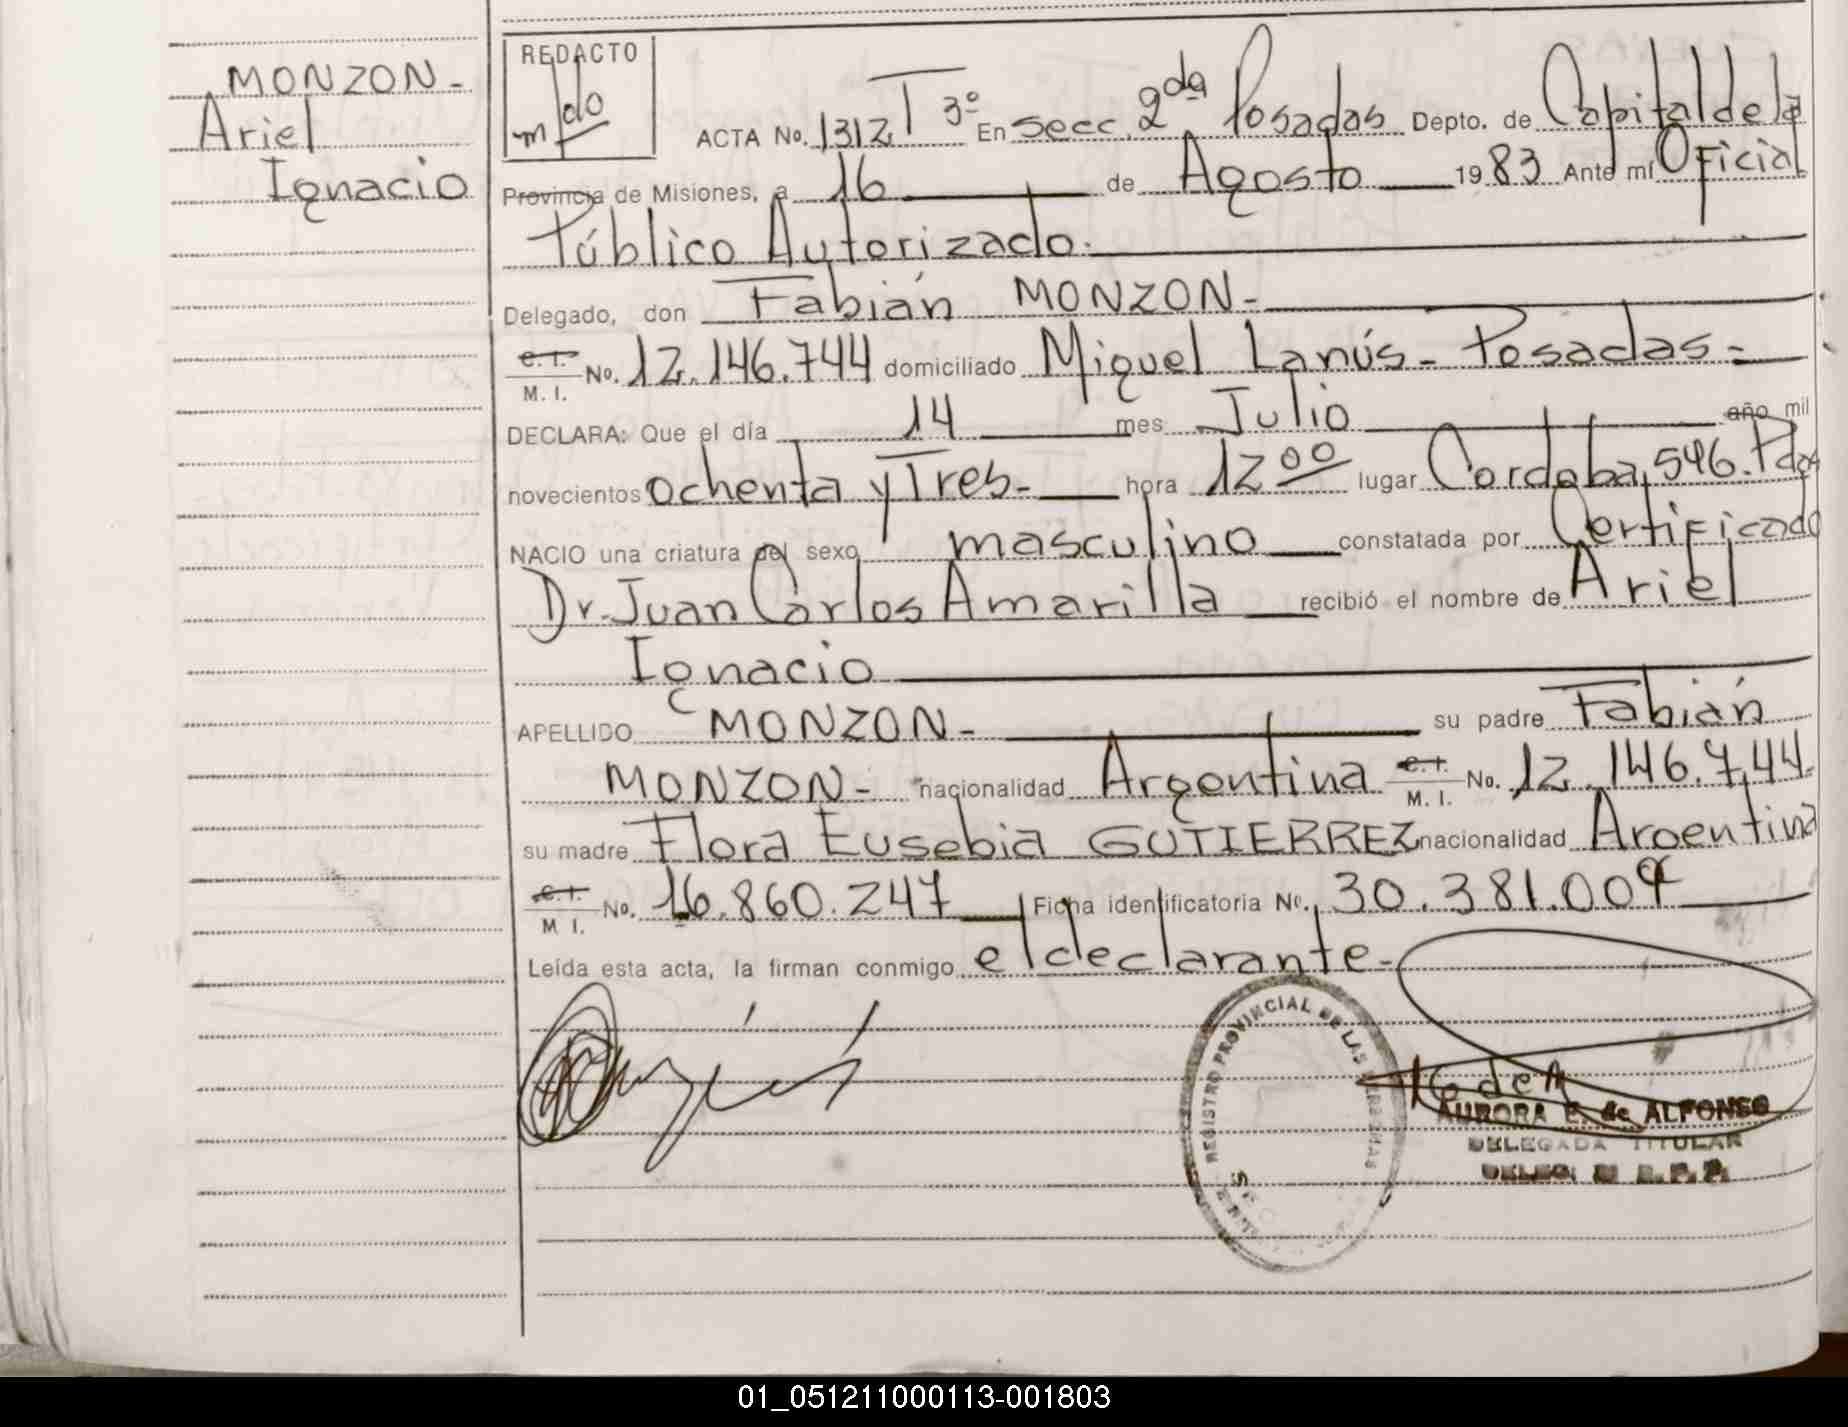 MONZON-
Ariel
Ignacio
REDACTO
ACTA No. 1312 T 3º En secc. 2da Posadas Depto. de Capital de la
Provincia de Misiones, a 16 de Agosto 1983 Ante mí Oficial
Público Autorizado.
Delegado, don Fabián MONZON-
C.I. M.I. No. 12.146.744 domiciliado Miguel Lanús - Posadas-
DECLARA: Que el día 14 mes Julio año mil
novecientos ochenta y Tres- hora 12 00 lugar Cordoba 546. Pdas
NACIO una criatura del sexo masculino constatada por Certificado
Dr. Juan Carlos Amarilla recibió el nombre de Ariel
Ignacio
APELLIDO MONZON- su padre Fabián
MONZON- nacionalidad Argentina C.I. M.I. No. 12.146.744-
su madre Flora Eusebia GUTIERREZ nacionalidad Argentina
C.I. M.I. No. 16.860.247 Ficha identificatoria Nº. 30.381.009
Leída esta acta, la firman conmigo el declarante-
REGISTRO PROVINCIAL DE LAS PERSONAS
AURORA E. de ALFONSO
DELEGADA TITULAR
01_051211000113-001803